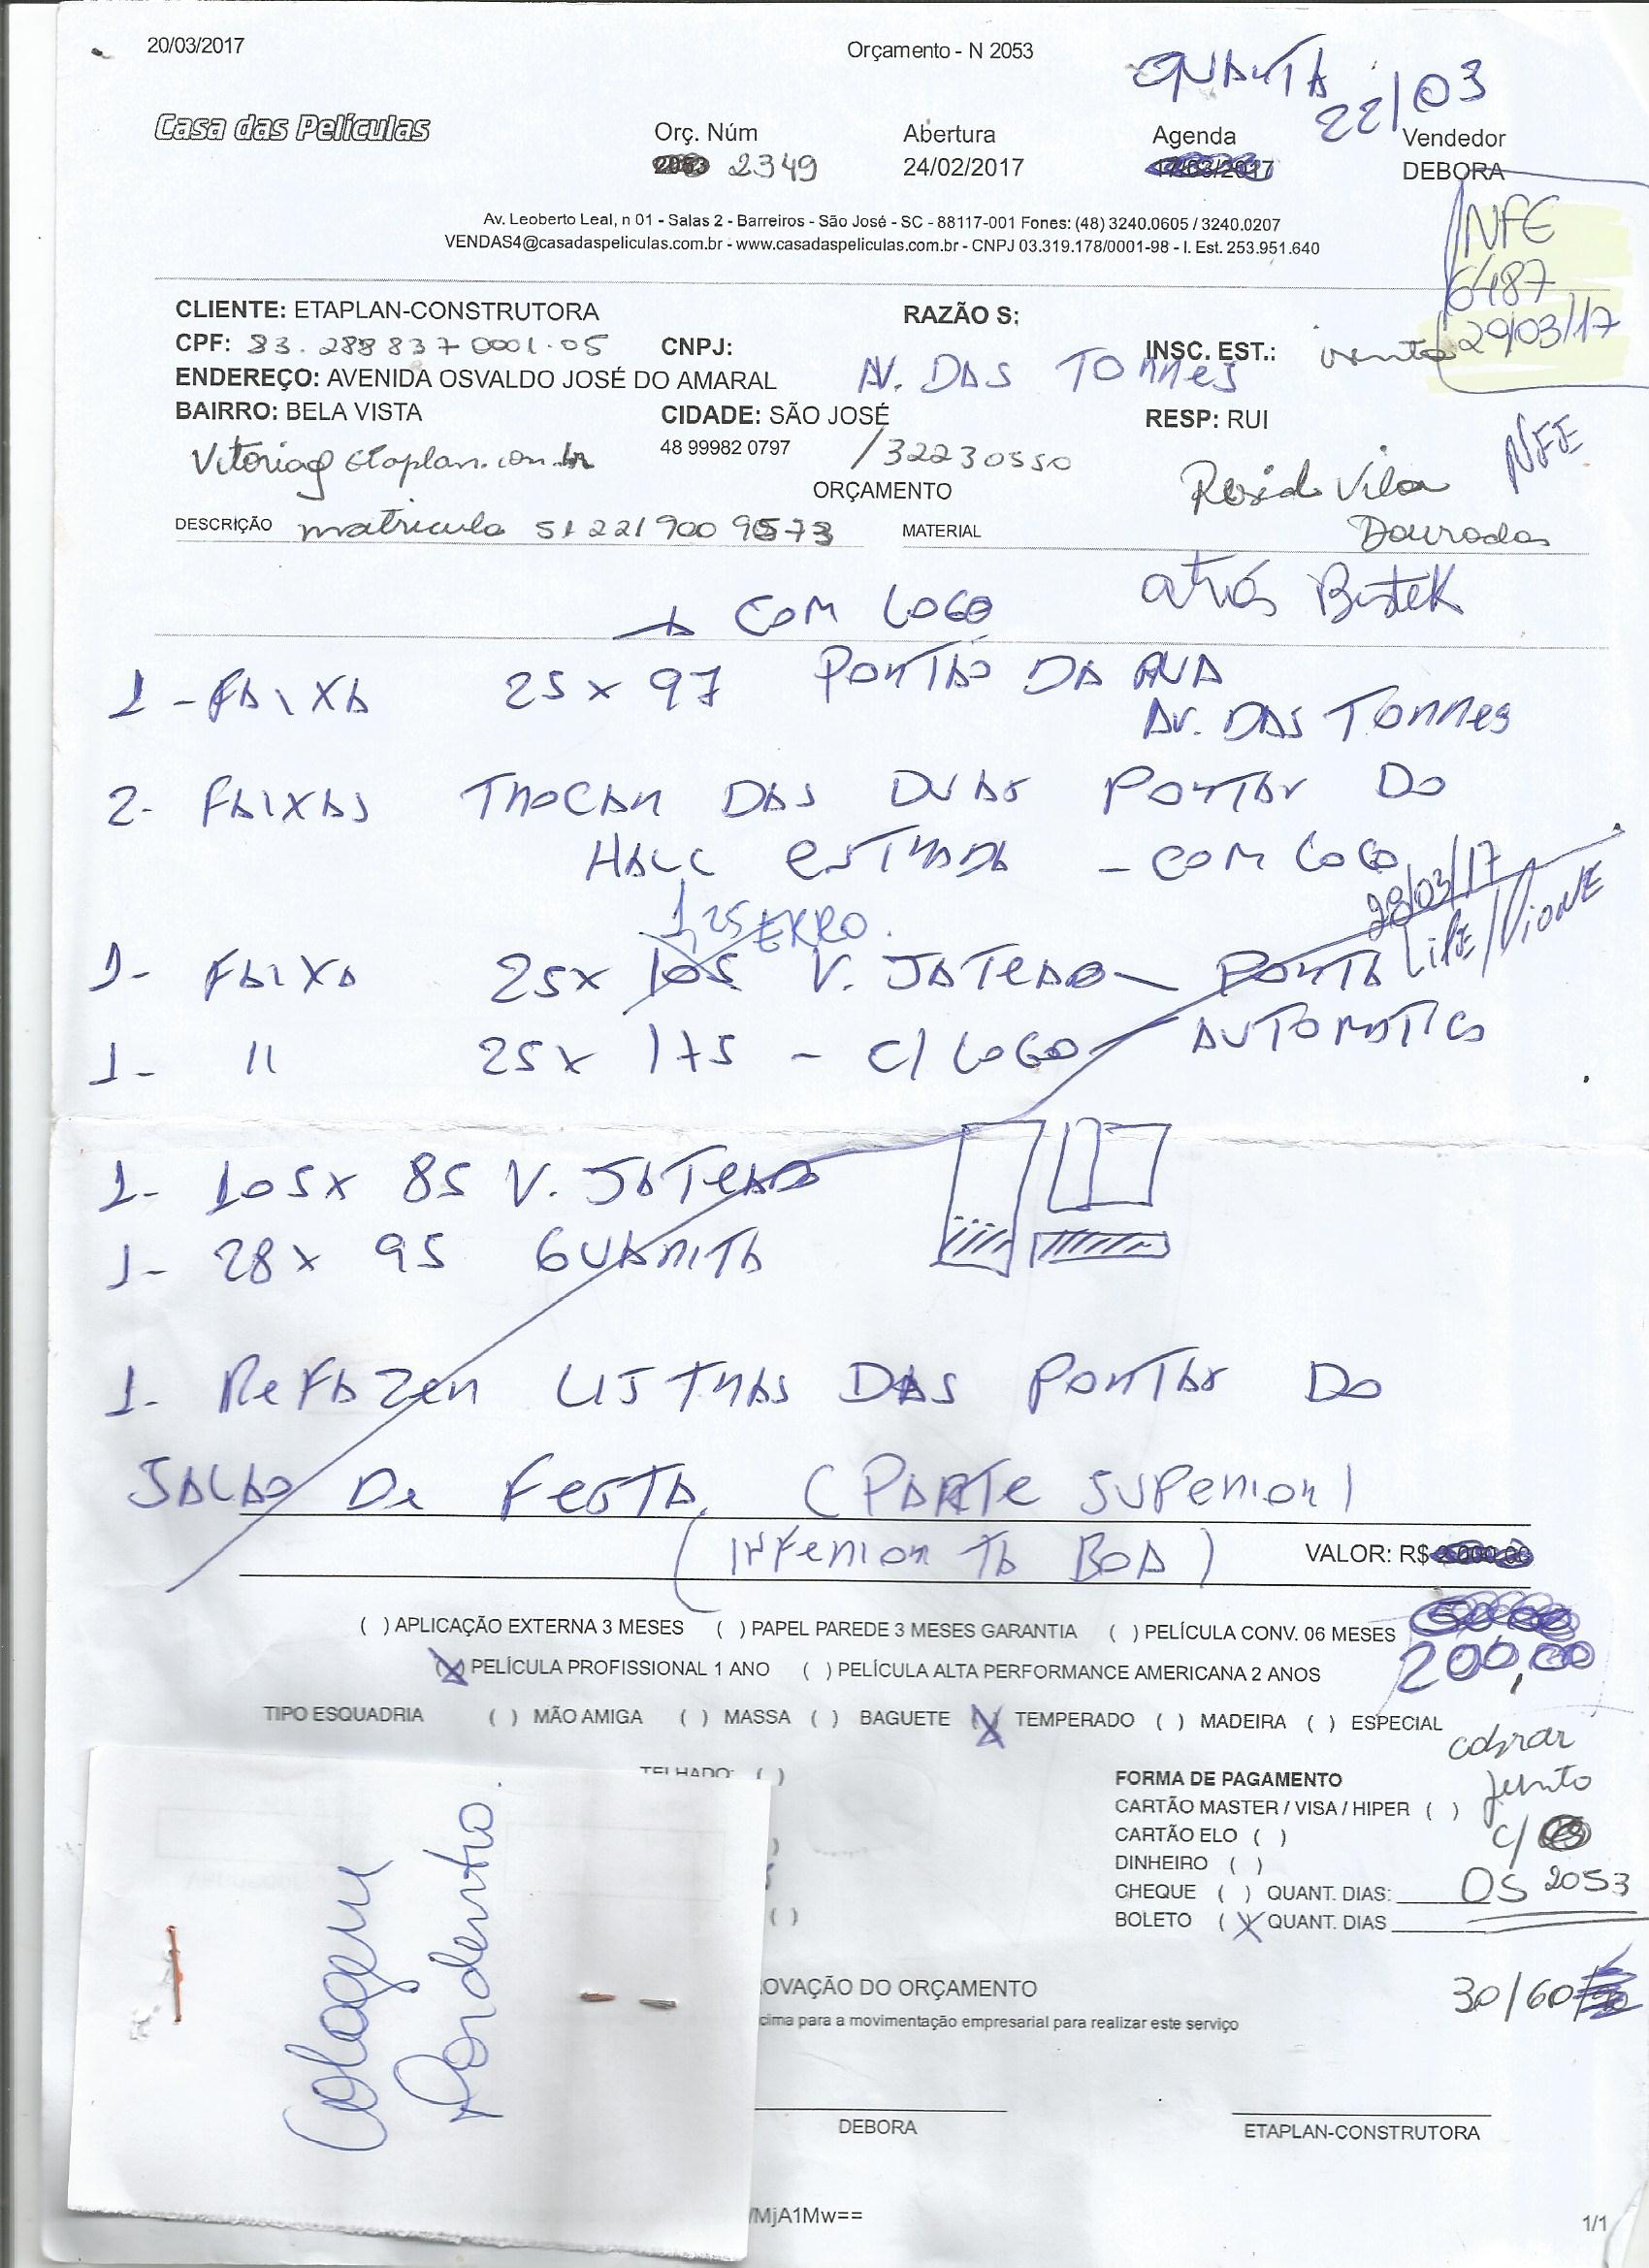 20/03/2017
Orçamento - N 2053
QUARTA 22/03
Casa das Películas
Orç. Núm
Abertura
Agenda
Vendedor
2053 2349
24/02/2017
17/03/2017
DEBORA
Av. Leoberto Leal, n 01 - Salas 2 - Barreiros - São José - SC - 88117-001 Fones: (48) 3240.0605 / 3240.0207
VENDAS4@casadaspeliculas.com.br - www.casadaspeliculas.com.br - CNPJ 03.319.178/0001-98 - I. Est. 253.951.640
NFE
6487
29/03/17
CLIENTE: ETAPLAN-CONSTRUTORA
RAZÃO S:
CPF: 83.288837 0001.05
CNPJ:
INSC. EST.:
ENDEREÇO: AVENIDA OSVALDO JOSÉ DO AMARAL
AV. DAS TORRES
BAIRRO: BELA VISTA
CIDADE: SÃO JOSÉ
RESP: RUI
Vitoria@etaplan.com.br
48 99982 0797
/32230550
NFE
ORÇAMENTO
Resid Vila
Dourados
DESCRIÇÃO
matricula 51221900 9573
MATERIAL
COM LOGO
atrás Bistek
1 - FAIXA 25 x 97 PORTÃO DA RUA
AV. DAS TORRES
2- FAIXAS TROCAR DAS DUAS PORTAS DO
HALL ESTRADA - COM LOGO
28/03/17
1,25 ERRO.
1- FAIXA 25x 105 V. JATEADO - PORTA
AUTOMATICA
1- 11 25x 175 - C/ LOGO
1- 105x 85 V. JATEADO
1- 28x 95 GUARITA
1. REFAZER LISTRAS DAS PORTAS DO
SALÃO DE FESTA. (PARTE SUPERIOR)
(INFERIOR TA BOA)
VALOR: R$
( ) APLICAÇÃO EXTERNA 3 MESES ( ) PAPEL PAREDE 3 MESES GARANTIA ( ) PELÍCULA CONV. 06 MESES
200,00
(X) PELÍCULA PROFISSIONAL 1 ANO ( ) PELÍCULA ALTA PERFORMANCE AMERICANA 2 ANOS
TIPO ESQUADRIA ( ) MÃO AMIGA ( ) MASSA ( ) BAGUETE (X) TEMPERADO ( ) MADEIRA ( ) ESPECIAL
cobrar
junto
c/
OS 2053
TELHADO: ( )
FORMA DE PAGAMENTO
CARTÃO MASTER / VISA / HIPER ( )
CARTÃO ELO ( )
DINHEIRO ( )
CHEQUE ( ) QUANT. DIAS:
BOLETO (X) QUANT. DIAS
30/60
Colagem
Pordentro.
OVAÇÃO DO ORÇAMENTO
cima para a movimentação empresarial para realizar este serviço
DEBORA
ETAPLAN-CONSTRUTORA
MjA1Mw==
1/1